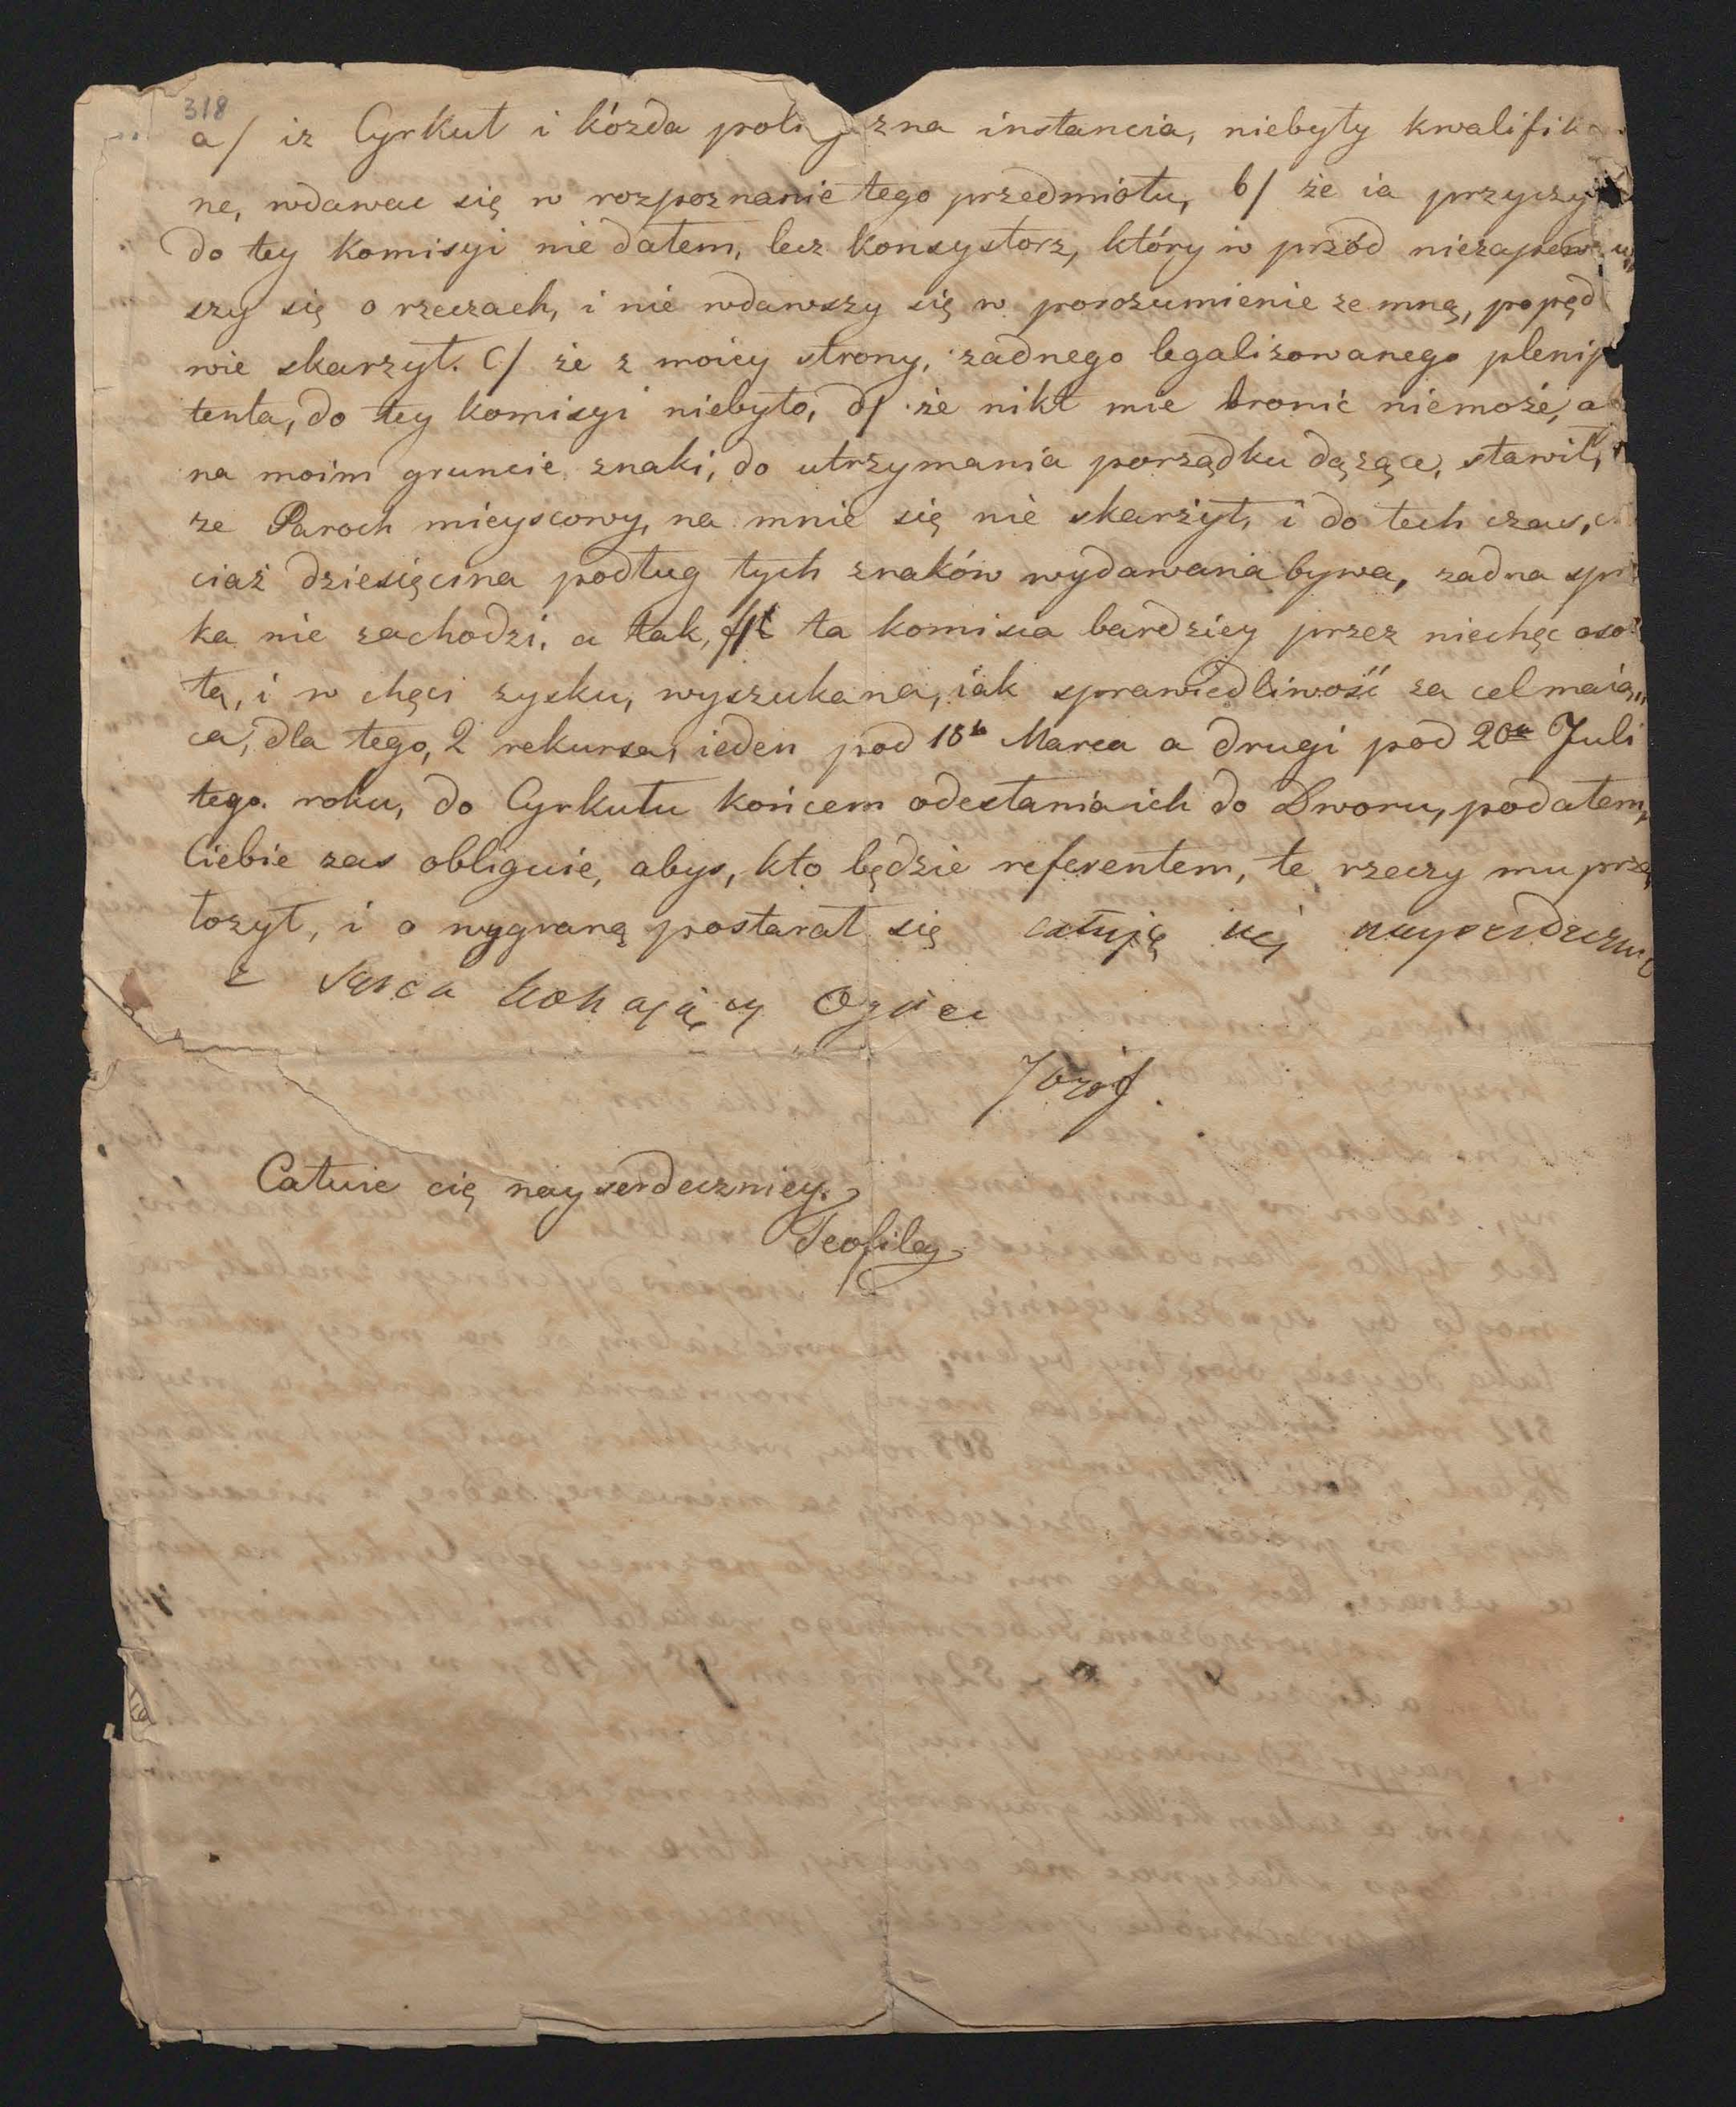 318
a/ iz Cyrkuł i kózda poli zna instancia, niebyły kwalifik
ne, wdawac się w rozpoznanie tego przedmiotu, b/ że ia przyczy
do tey komisyi nie dałem, lecz konsystorz, który w przód niezapew
szy się o rzeczach, i nie wdawszy się w porozumienie ze mną, popęd
wie skarzył. C/ że z moiey strony, zadnego legalizowanego plenip
tenta, do tey komisyi niebyło, d/ że nikt mie bronić niemoże, a
na moim gruncie znaki, do utrzymania porządku dążące, stawił,
ze Paroch mieyscowy, na mnie się nie skarżył, i do tech czas,
ciaż dziesięcina podług tych znaków wydawana bywa, zadna spr
ka nie zachodzi. a tak, ta komisia bardziey przez niechęc oso
tą, i w chęci zysku, wyszukana, iak sprawiedliwość za cel maią„
ca, dla tego, 2 rekursa, ieden pod 18 Marca a drugi pod 20 Juli
tego. roku, do Cyrkułu końcem odesłania ich do Dworu, podałem,
Ciebie zas obliguie, abys, kto będzie referentem, te rzeczy mu prze
łozył, i o wygraną postarał się całuję cię nayserdeczniey
z serca kohający Ojciec
Józef.
Całuie cię nayserdeczniey.
Teofila